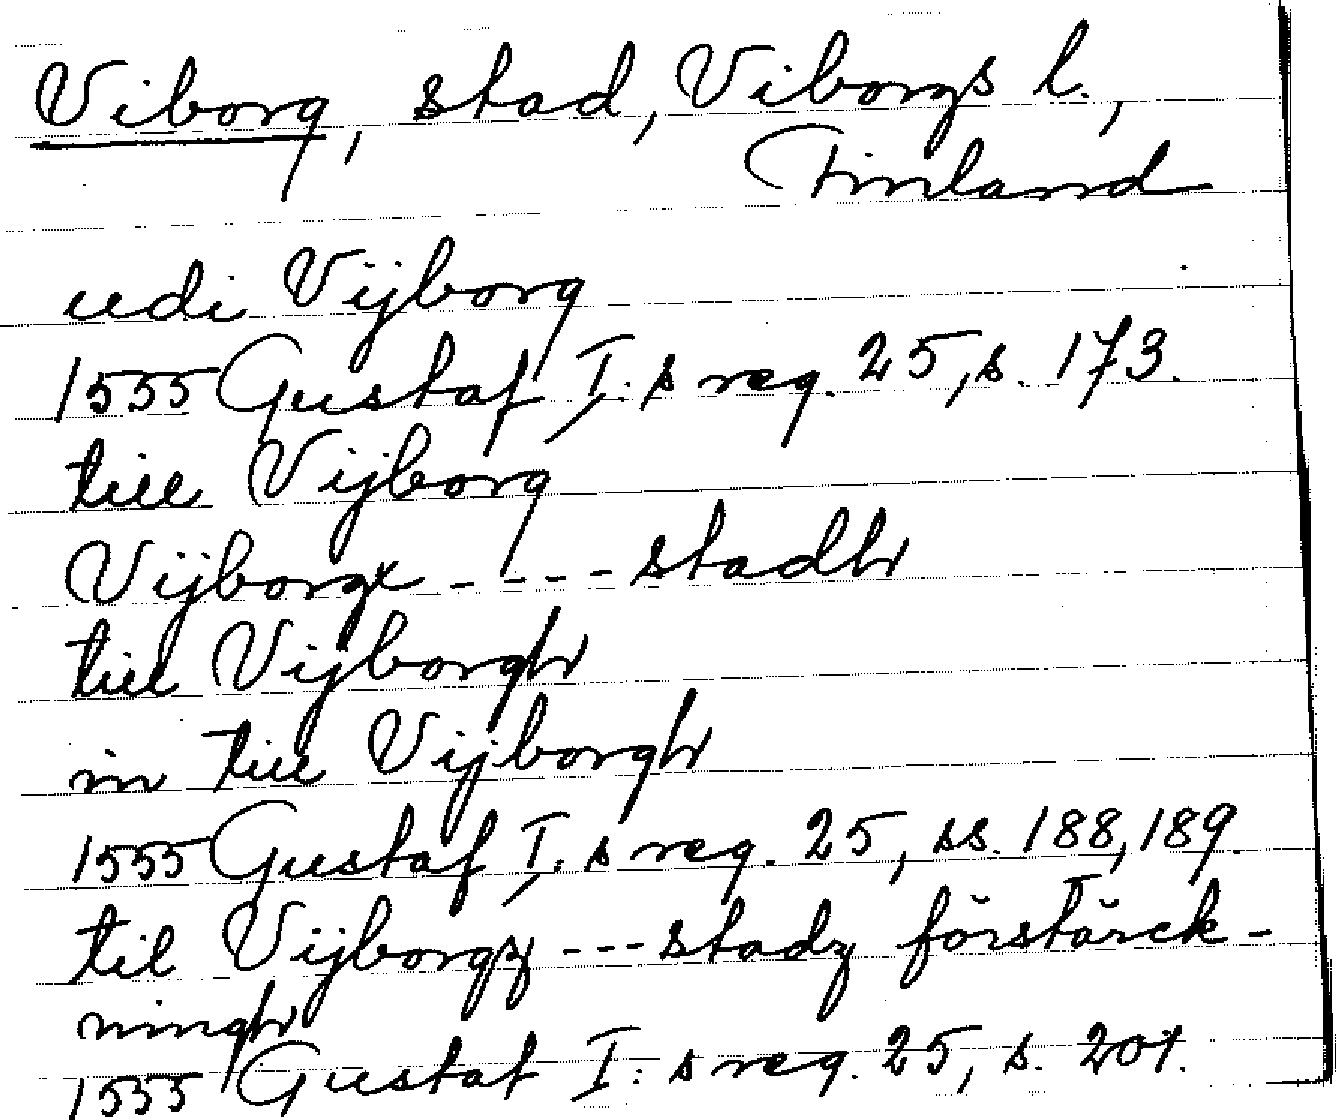 Viborg, stad, Viborgs l.,
Finland
udi Vijborg
1555 Gustaf I:s reg. 25, s. 173.
till Vijborg
Vijborgx - - - - stadh
till Vijborgh
in till Vijborgh
1555 Gustaf I:s reg. 25, ss. 188, 189.
til Vijborgz - - - stadz förstärck-
ningh
1555 Gustaf I:s reg. 25, s. 201.